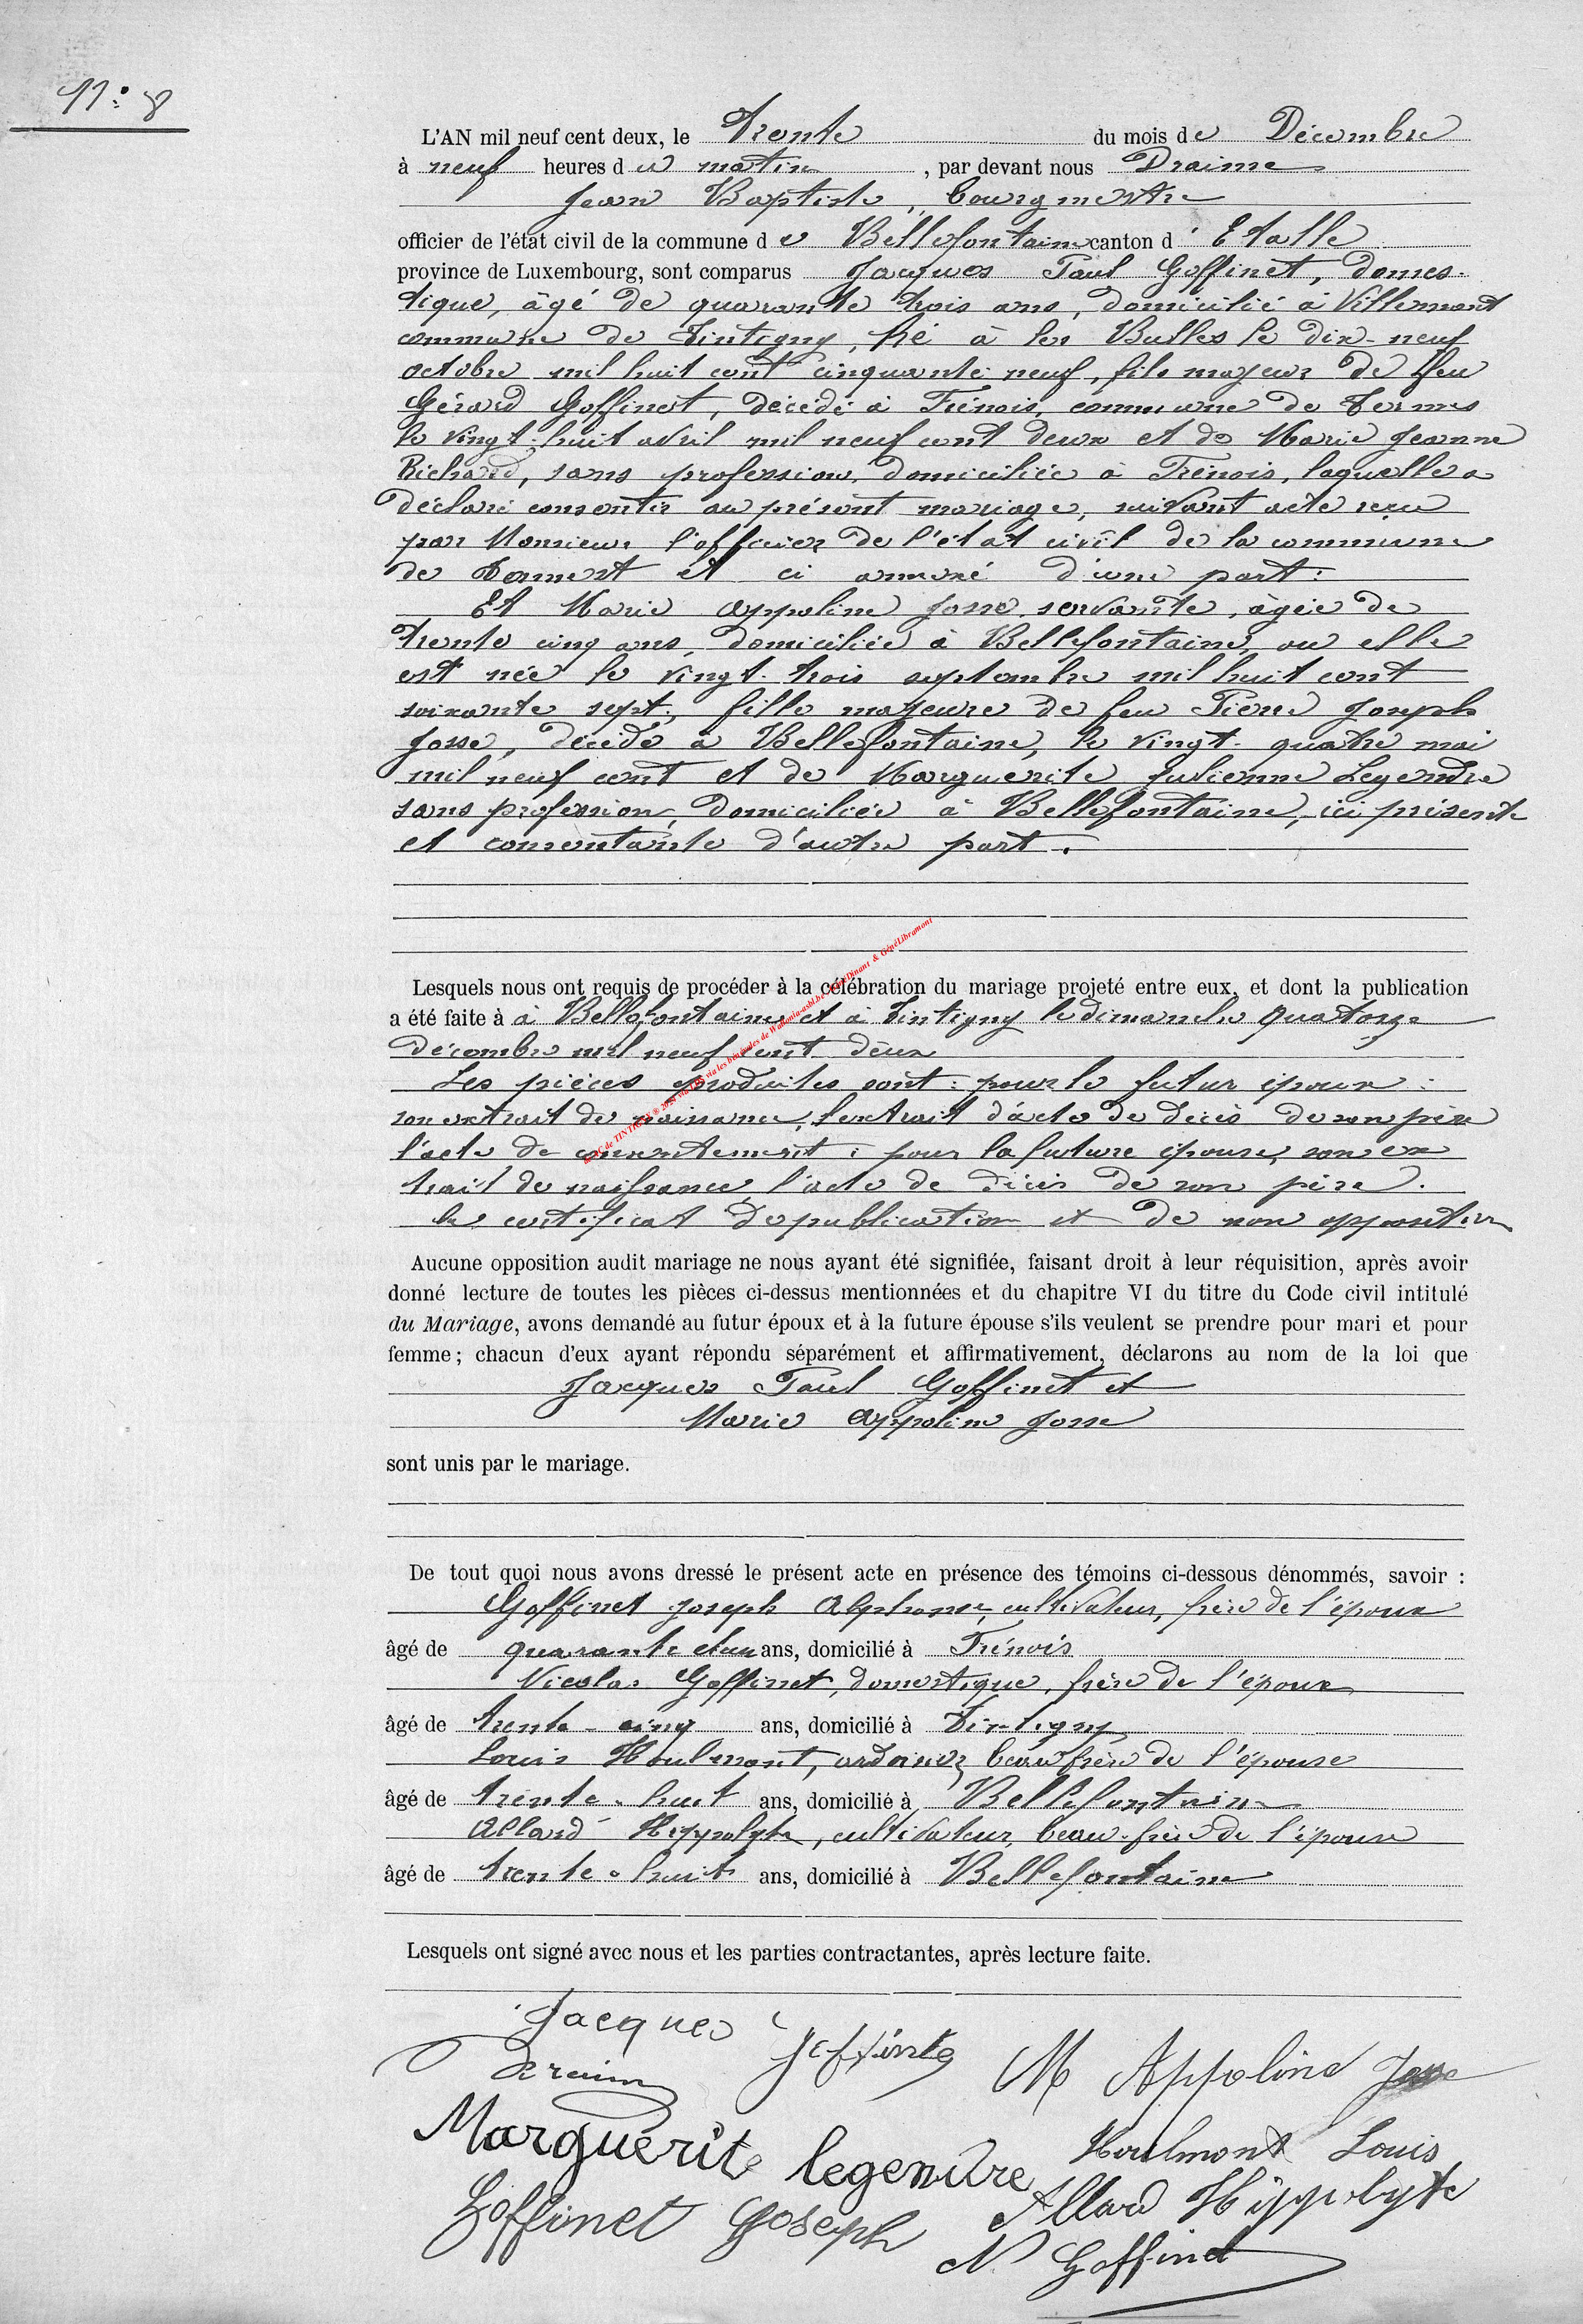 N° 8
L'AN mil neuf cent deux, le Trente du mois de Décembre
à neuf heures du matin, par devant nous Draime
Jean Baptiste, bourgmestre
officier de l'état civil de la commune de Bellefontaine canton d'Etalle
province de Luxembourg, sont comparus Jacques Paul Goffinet, domes-
tique, âgé de quarante trois ans, domicilié à Villemont
commune de Tintigny, Né à les Bulles le dix-neuf
octobre mil huit cent cinquante neuf, fils majeur de feu
Gérard Goffinet, décédé à Frénois, commune de Termes
le vingt-huit avril mil neuf cent deux et de Marie Jeanne
Richard, sans profession, domiciliée à Frénois, laquelle a
déclaré consentir au présent mariage, suivant acte reçu
par Monsieur l'officier de l'état civil de la commune
de et ci annexé d'une part:
Et Marie Appoline Josse, servante, âgée de
trente cinq ans, domiciliée à Bellefontaine, ou elle
est née le vingt-trois septembre mil huit cent
soixante sept, fille majeure de feu Pierre Joseph
Josse, décédé à Bellefontaine, le vingt-quatre mai
mil neuf cent et de Marguerite Julienne Legendre
sans profession, domiciliée à Bellefontaine, ici présente
et consentante d'autre part.
Lesquels nous ont requis de procéder à la célébration du mariage projeté entre eux, et dont la publication
a été faite à à Bellefontaine et à Tintigny le dimanche quatorze
décembre mil neuf cent deux
Les pièces produites sont: pour le futur époux:
son extrait de naissance, l'extrait d'acte de décès de son père
l'acte de consentement; pour la future épouse, son ex
trait de naissance, l'acte de décès de son père.
le certificat de publication et de non opposition
Aucune opposition audit mariage ne nous ayant été signifiée, faisant droit à leur réquisition, après avoir
donné lecture de toutes les pièces ci-dessus mentionnées et du chapitre VI du titre du Code civil intitulé
du Mariage, avons demandé au futur époux et à la future épouse s'ils veulent se prendre pour mari et pour
femme; chacun d'eux ayant répondu séparément et affirmativement, déclarons au nom de la loi que
Jacques Paul Goffinet et
Marie Appoline Josse
sont unis par le mariage.
De tout quoi nous avons dressé le présent acte en présence des témoins ci-dessous dénommés, savoir :
Goffinet Joseph Alphonse, cultivateur, frère de l'époux
âgé de quarante et un ans, domicilié à Frénois
Nicolas Goffinet, domestique, frère de l'époux
âgé de trente-cinq ans, domicilié à Tintigny
Louis Houlmont, ardoisier, beau frère de l'épouse
âgé de trente-huit ans, domicilié à Bellefontaine
Allard Hyppolyte, cultivateur, beau-frère de l'épouse
âgé de trente-huit ans, domicilié à Bellefontaine
Lesquels ont signé avec nous et les parties contractantes, après lecture faite.
Jacques
Draime M Appoline Josse
Marguerite legendre Houlmont Louis
Goffinet Joseph Allard Hÿppolyte
N Goffinet